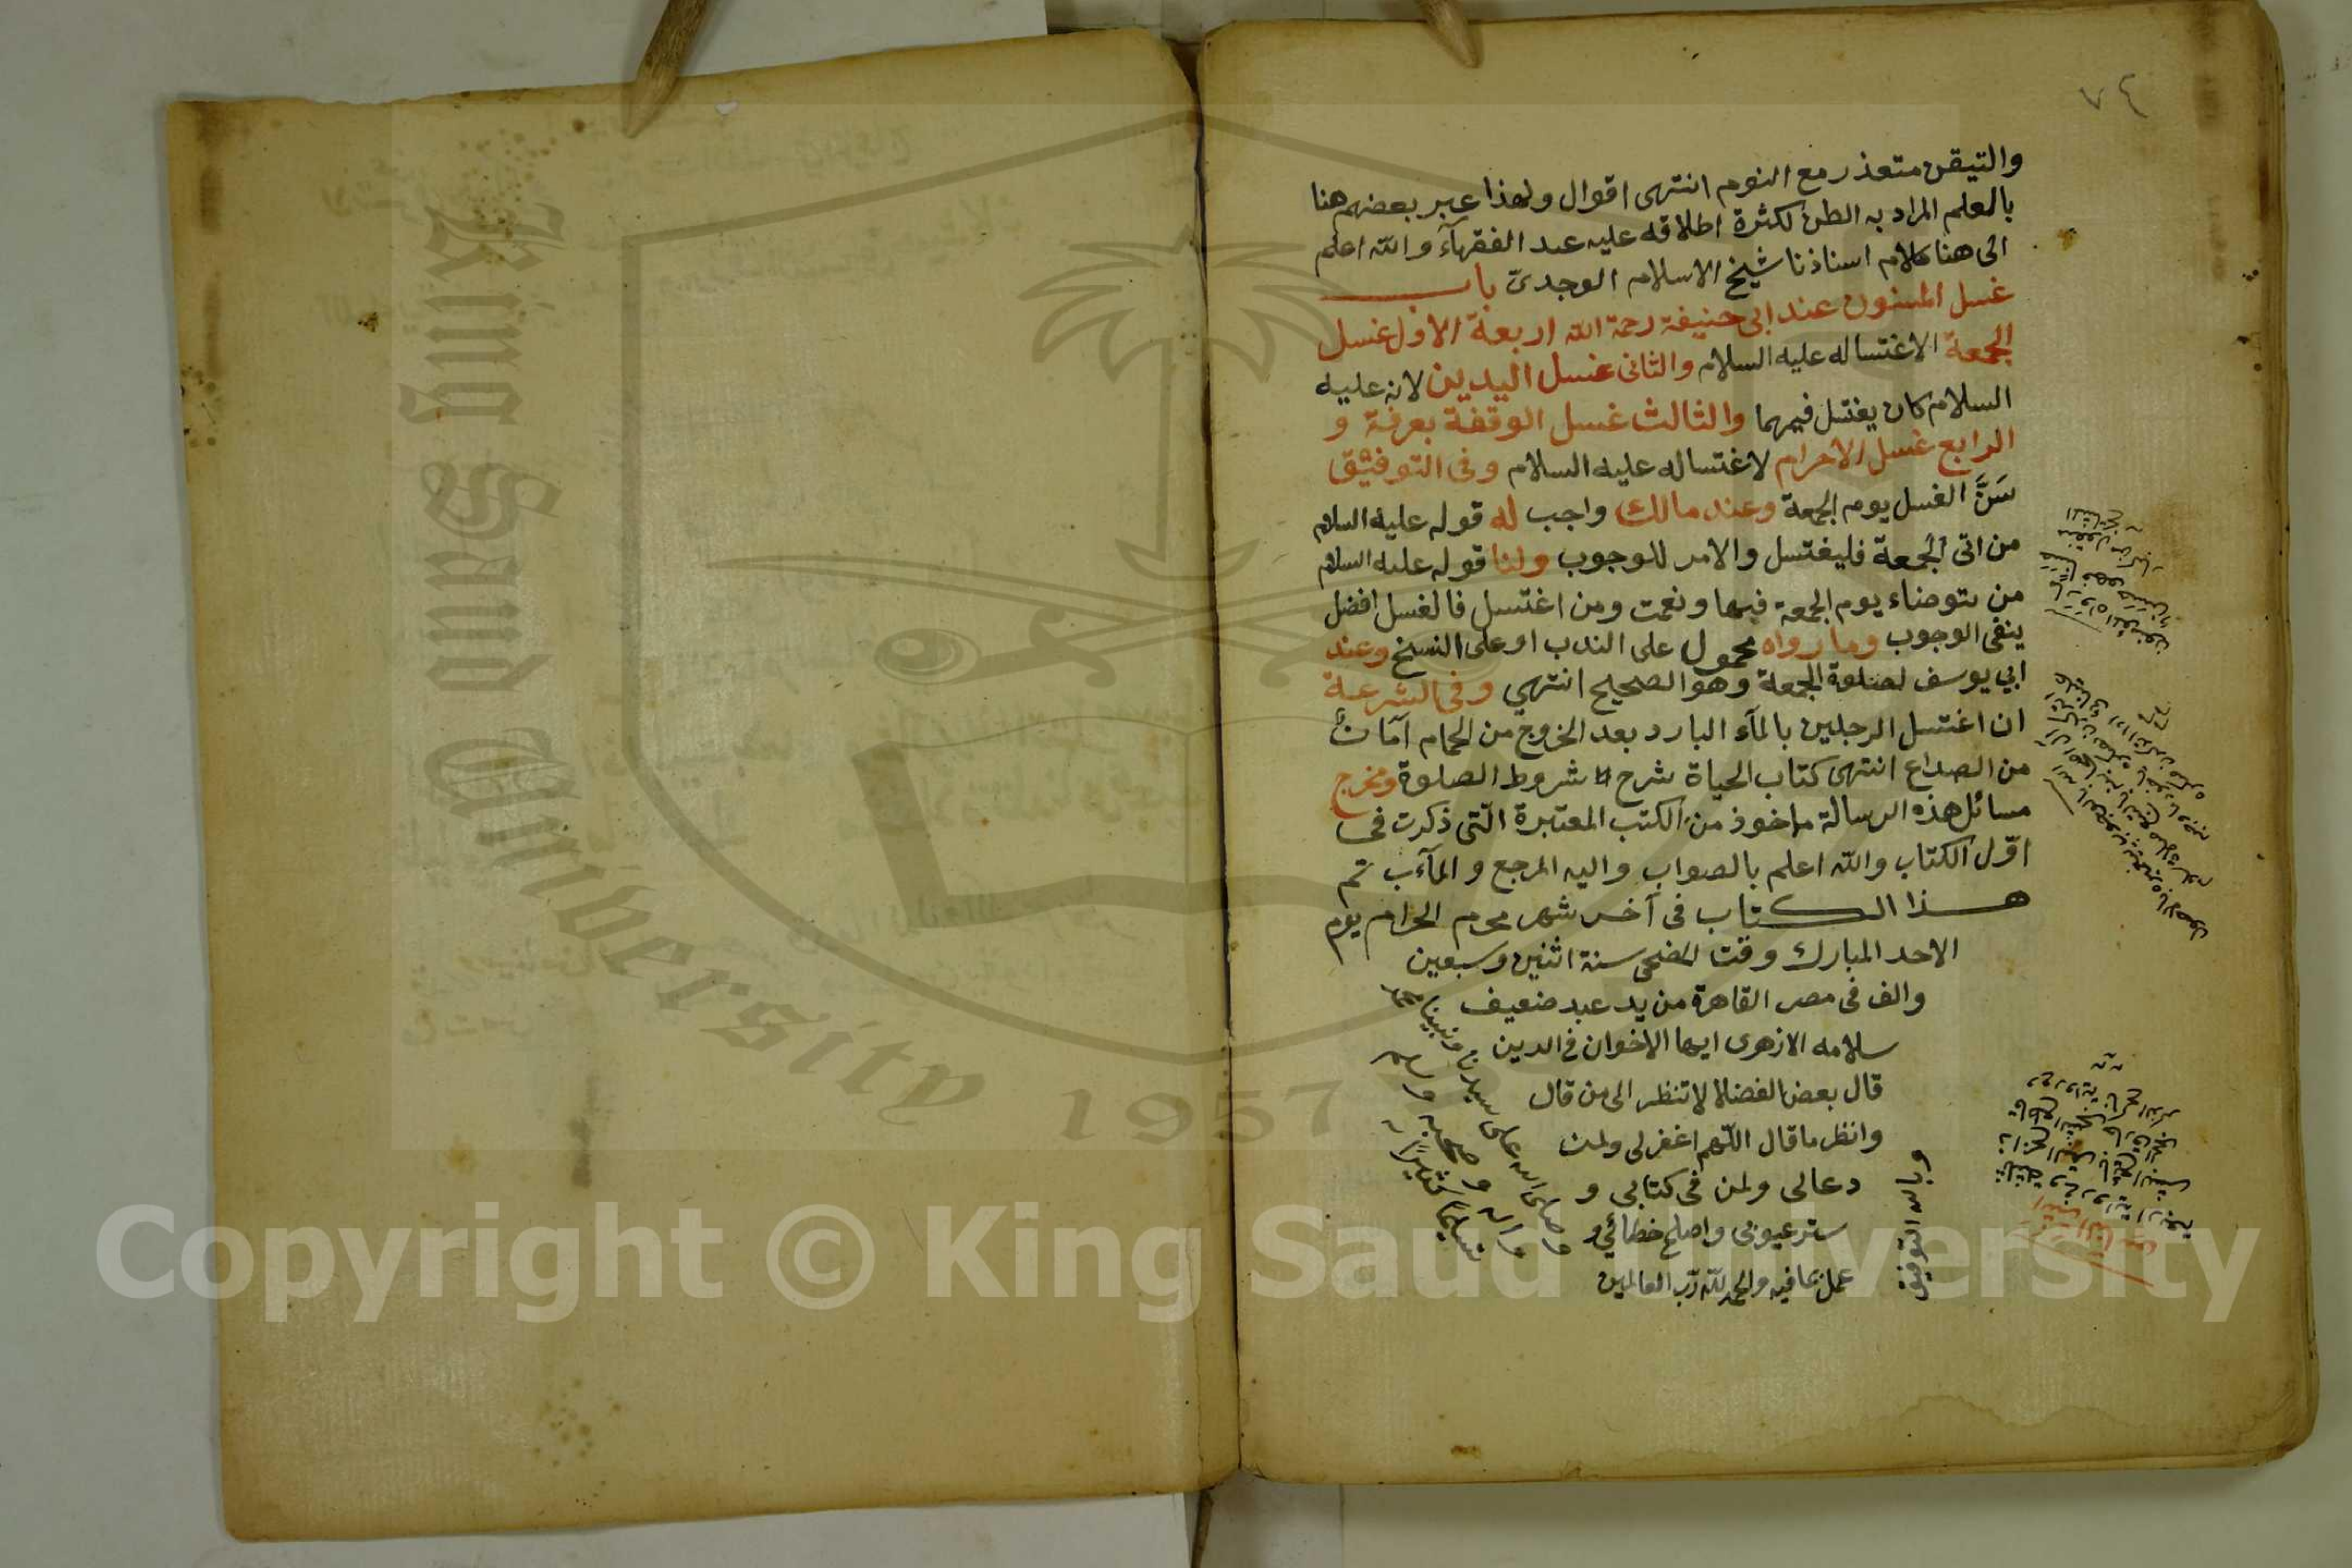 ٧٤
والتيقن متعذر مع النوم انتهى اقوال ولهذا عبر بعضهم هنا
بالعلم المراد به الظن لكثرة اطلاقه عليه عند الفقهآء والله اعلم
الى هنا كلام استاذنا شيخ الاسلام الوجدى باب
غسل المسنون عند ابى حنيفة رحمة الله اربعة الاول غسل
الجمعة الاغتساله عليه السلام والثانى غسل اليدين لانه عليه
السلام كان يغتسل فيهما والثالث غسل الوقفة بعرفة و
الرابع غسل الاحرام لاغتساله عليه السلام وفى التوفيق
سَنَّ الغسل يوم الجمعة وعند مالك واجب له قوله عليه السلام
من اتى الجمعة فليغتسل والامر للوجوب ولنا قوله عليه السلام
من توضاء يوم الجمعة فبها ونعمت ومن اغتسل فالغسل افضل
ينفى الوجوب وما رواه محمول على الندب او على النسخ وعند
ابي يوسف لصلوة الجمعة وهو الصحيح انتهي وفى الشرعة
ان اغتسل الرجلين بالمآء البارد بعد الخروج من الحمام آمان
من الصداع انتهى كتاب الحياة شرح شروط الصلوة ومخرج
مسائل هذه الرسالة ماخوذ من الكتب المعتبرة التى ذكرت فى
اوّل الكتاب والله اعلم بالصواب واليه المرجع والمآب تم
هذا الكتاب فى آخر شهر محرم الحرام يوم
الاحد المبارك وقت الضحى سنة اثنين وسبعين
والف فى مصر القاهرة من يد عبد ضعيف
سلامه الازهرى ايها الاخوان فى الدين
قال بعض الفضلا لا تنظر الى من قال
وانظر ما قال اللهم اغفر لى ولمن
دعالى ولمن فى كتابى و
ستر عيوبى واصلح خطائي و
عمل بما فيه والحمد لله رب العالمين
وبالله التوفيق
وصلى الله على سيدنا ونبينا محمد
واله وصحبه وسلم
تسليما كثيرًا
King Saud University
1957
Copyright © King Saud University